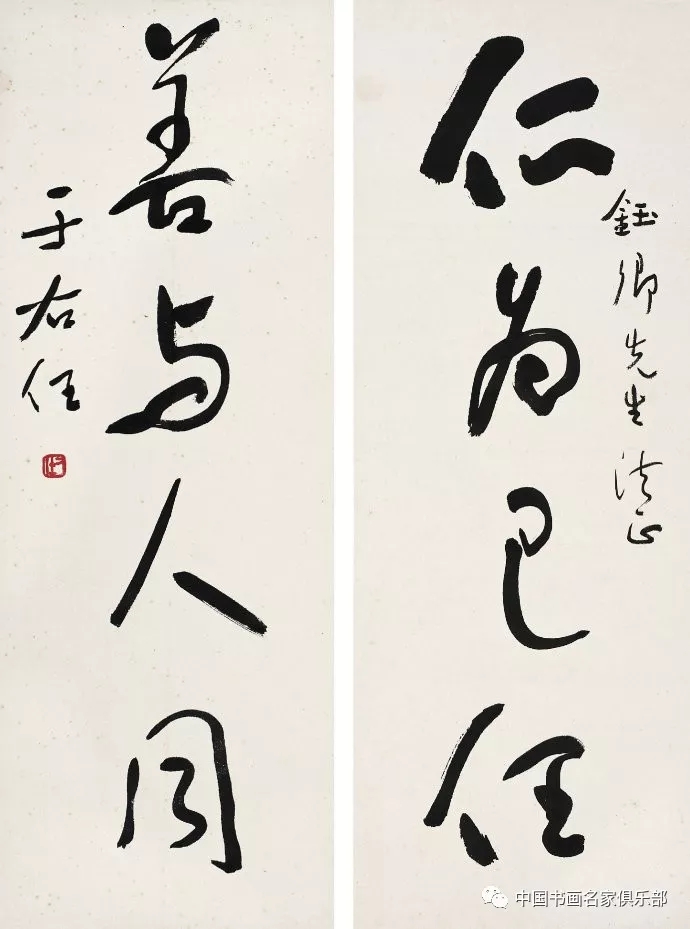 鈺卿先生法正
仁为己任
善与人同
于右任
中国书画名家俱乐部